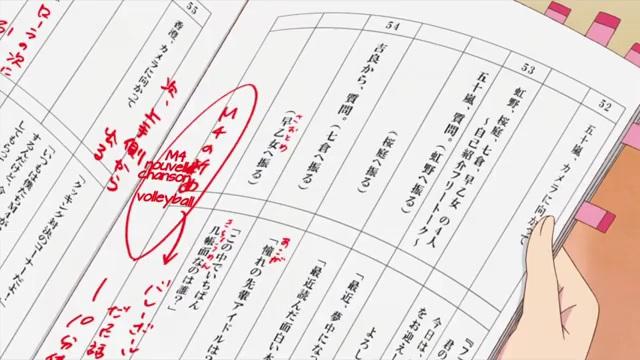 52
五十嵐、カメラに向かって
53
虹野、桜庭、七倉、早乙女の4人
〜自己紹介フリートーク〜
五十嵐、質問。(虹野へ振る)
(桜庭へ振る)
54
吉良から、質問。(七倉へ振る)
(早乙女へ振る)
さおとめ
55
香澄、カメラに向かって
M4の新曲
M4
nouvelle
chanson
volleyball
次、上手側から
出る
ローラの次に
「フ
君の
今日は
をお迎え
よろし
「最近、夢中にな
「最近読んだ面白い本
あこが
「憧れの先輩アイドルは?
「この中でいちばん
几帳面なのは誰?」
きちょうめん
バレーボール
だった話
1
10分
「クッキング対決のコーナーだよ!
「いつもは僕たちM4が
するんだけど、今
してもらう